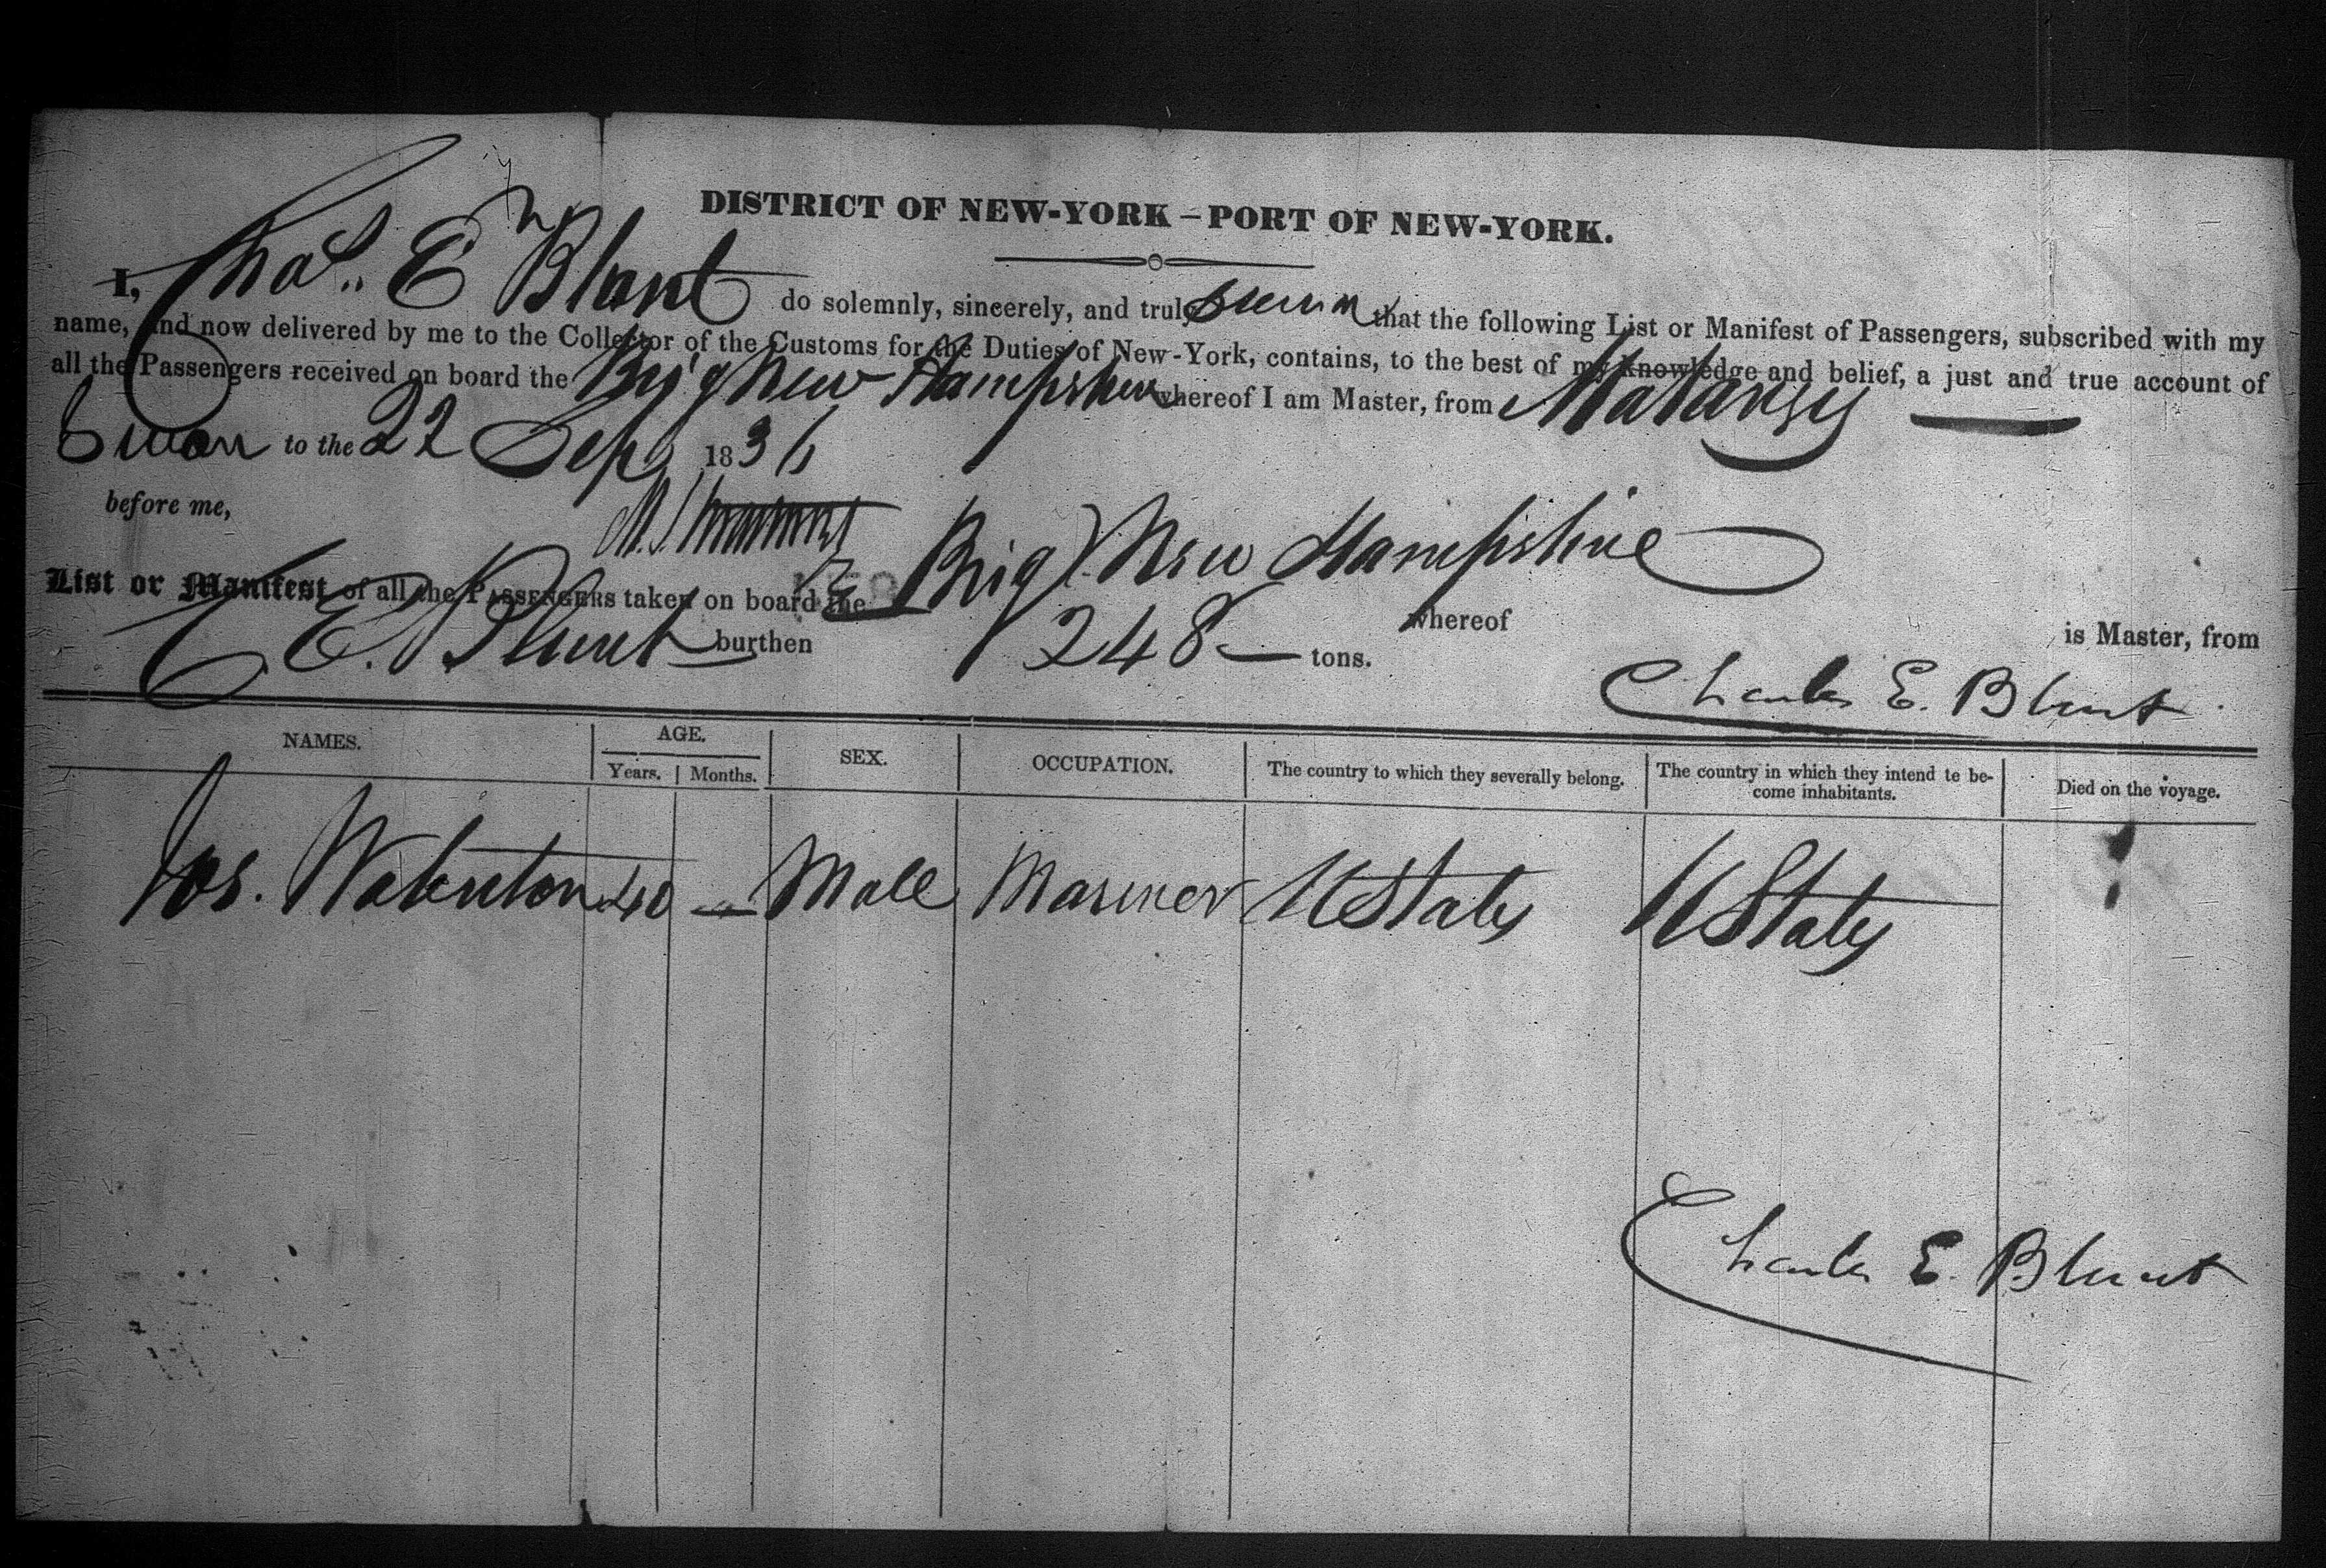 DISTRICT OF NEW-YORK - PORT OF NEW-YORK.
I, Chas.. E Blunt do solemnly, sincerely, and truly swear that the following List or Manifest of Passengers, subscribed with my
name, and now delivered by me to the Collector of the Customs for the Duties of New-York, contains, to the best of my knowledge and belief, a just and true account of
all the Passengers received on board the Brig New Hampshire whereof I am Master, from Matanzas
Sworn to the 22 Sep 1836
before me,
List or Manifest of all the PASSENGERS taken on board the Brig New Hampshire whereof is Master, from
C E. Blunt burthen 248 tons.
Charles E. Blunt
NAMES. AGE. SEX. OCCUPATION. The country to which they severally belong. The country in which they intend te be- Died on the voyage.
Years. Months. come inhabitants.
Jos. Waterton 40 — Male Mariner U States U States
Charles E. Blunt